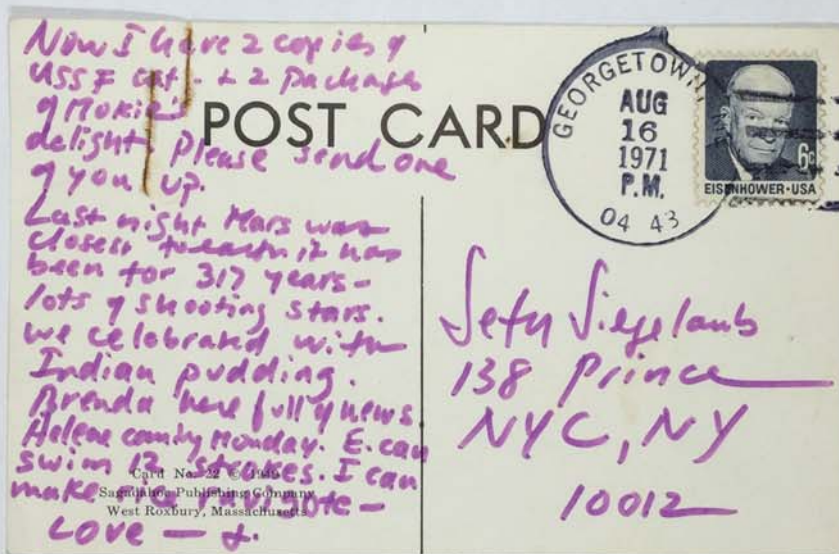 Now I have 2 copies of
USSF cat. + 2 packages
of Mokie's
delight, please send one
of you up.
Last night Mars was
closest to earth it has
been for 317 years -
lots of shooting stars.
we celebrated with
Indian pudding.
Brenda here full of news.
Helene coming Monday. E. can
swim 12 strokes. I can
make
love —
POST CARD
GEORGETOWN
AUG
16
1971
P.M.
04 43
6c
EISENHOWER·USA
Seth Siegelaub
138 Prince
NYC, NY
10012
Card No. 22 © 1949
Sagadahoc Publishing Company
West Roxbury, Massachusetts